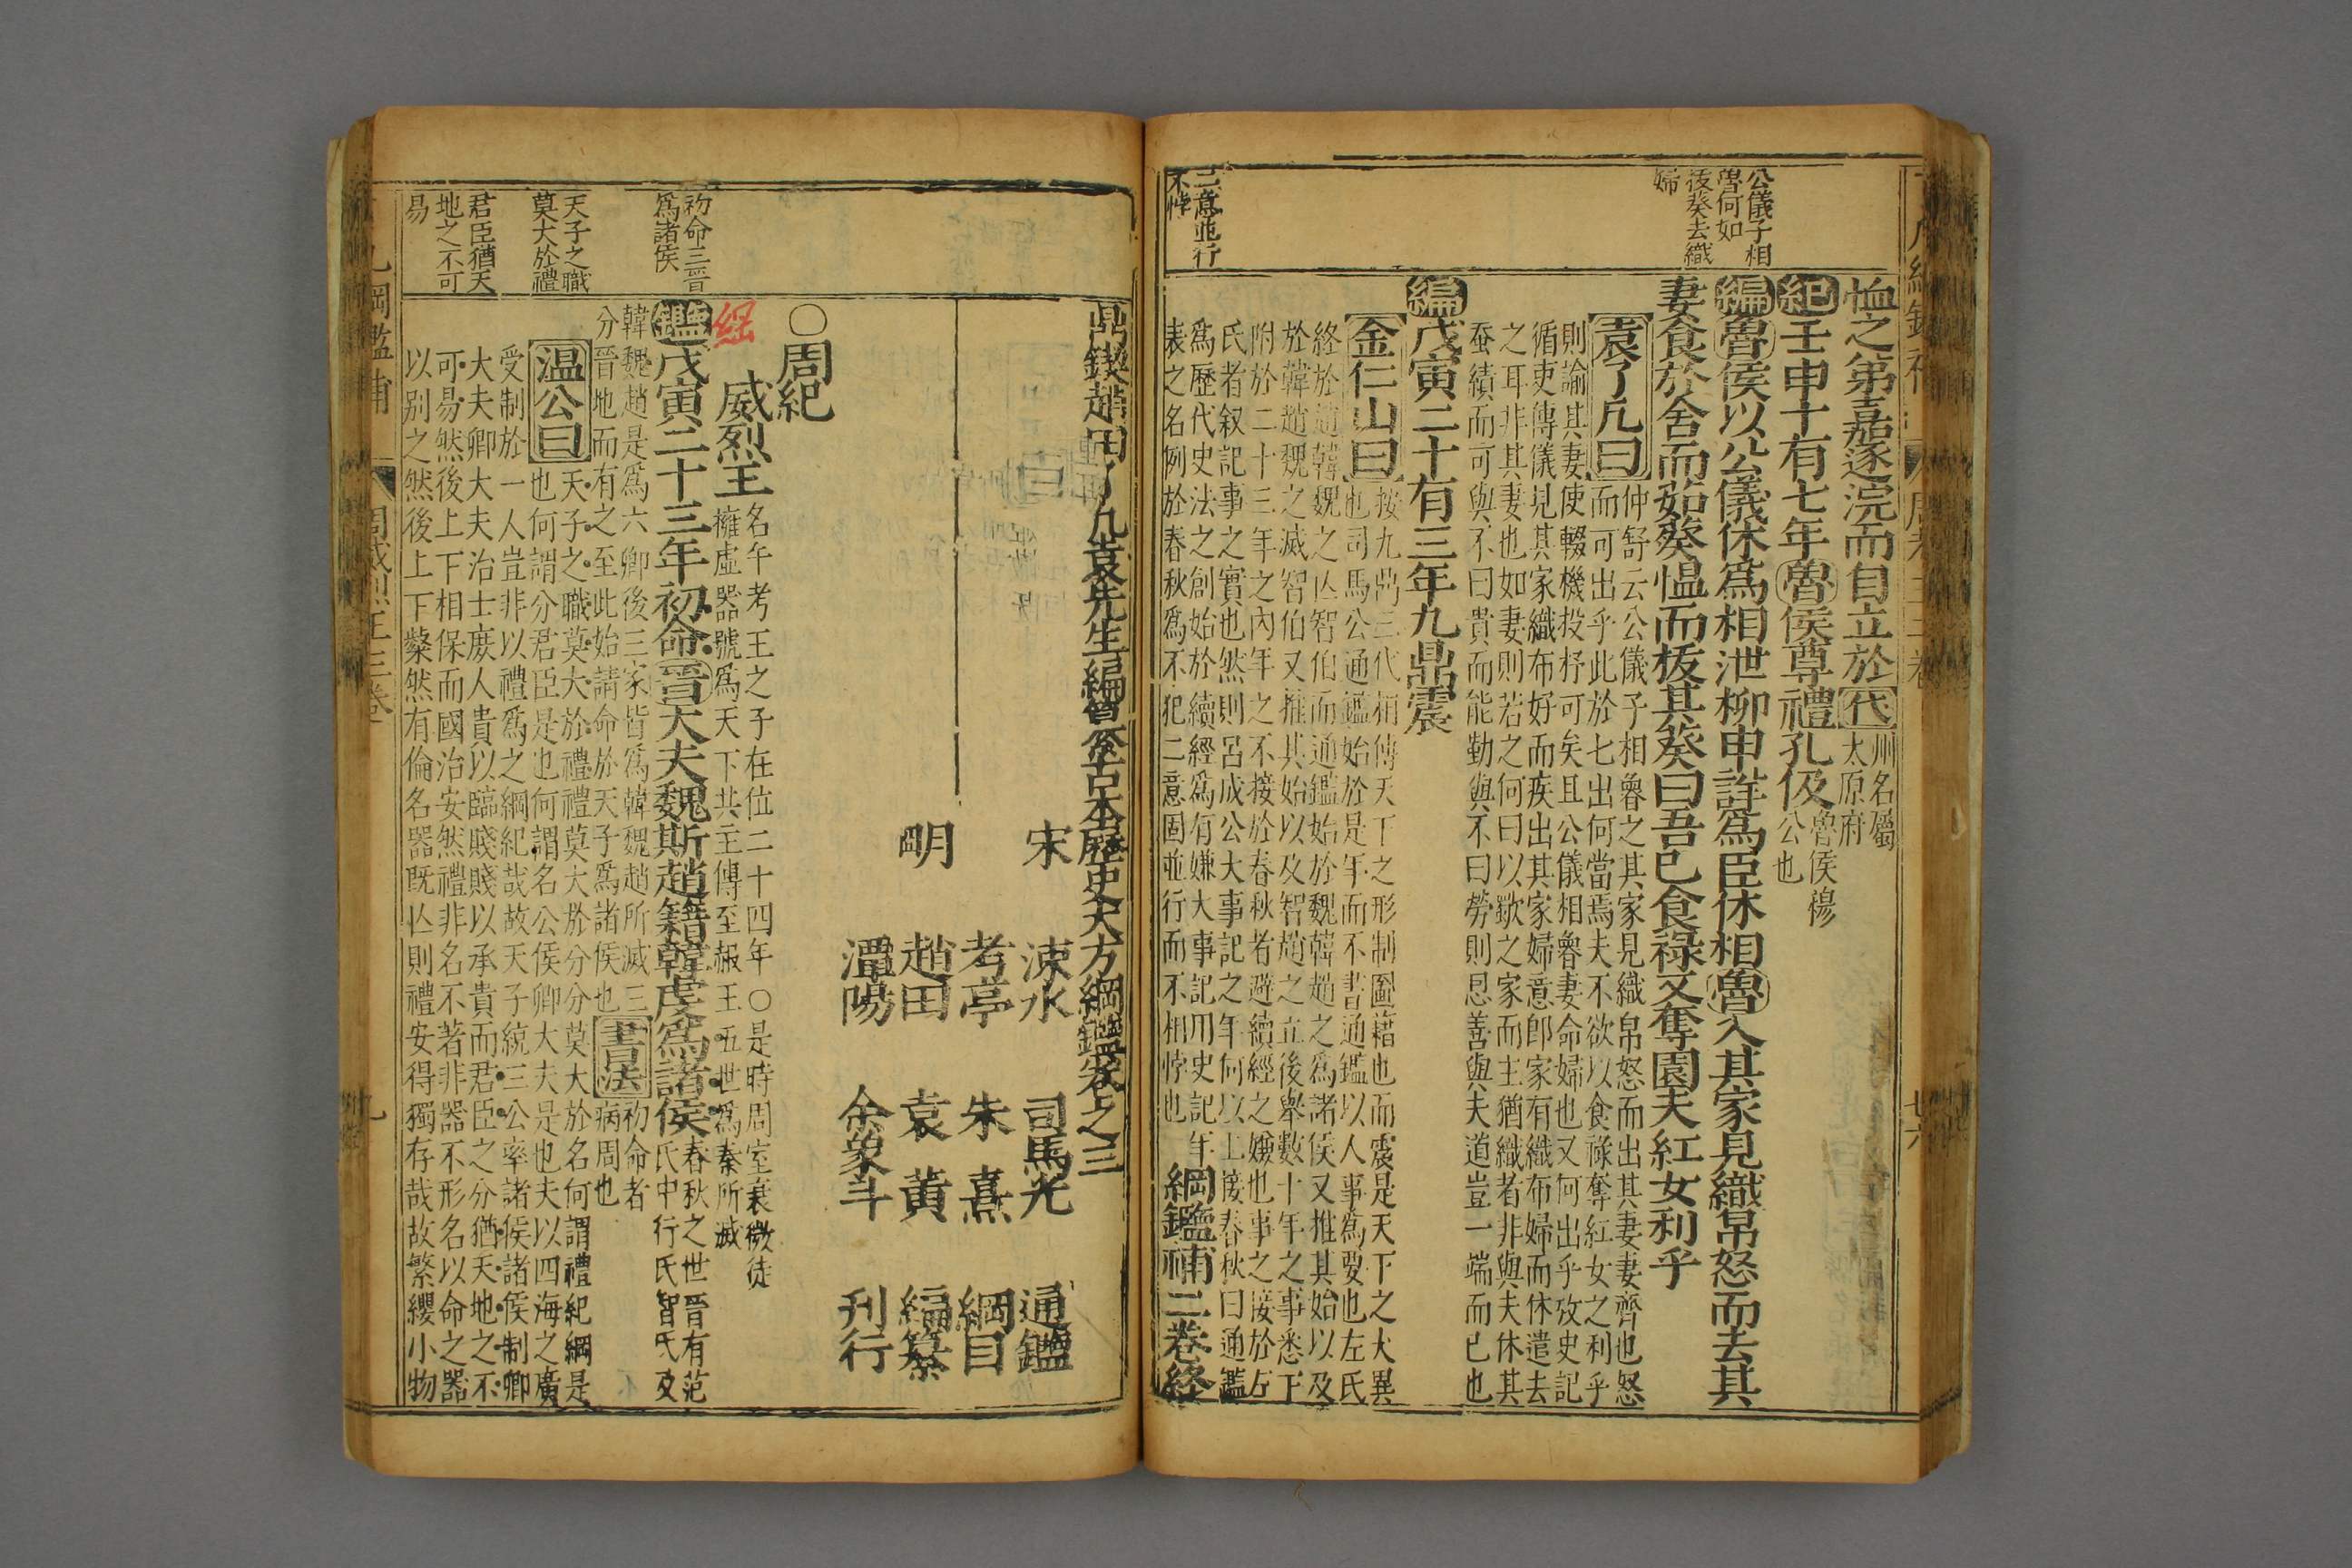 公儀子相
魯何如
拔葵去織
婦
二意並行
不悖
恤之弟嘉逐浣而自立於代州名屬
太原府
紀壬申十有七年魯侯尊禮孔伋魯侯穆
公也
編魯侯以公儀休爲相泄柳申詳爲臣休相魯入其家見織帛怒而去其
妻食於舍而茹葵慍而拔其葵曰吾已食祿又奪園夫紅女利乎
袁了凡曰仲舒云公儀子相魯之其家見織帛怒而出其妻妻齊也怒
而可出乎此於七出何當焉夫不欲以食祿奪紅女之利乎
則諭其妻使輟機投杼可矣且公儀相魯妻命婦也又何出乎攷史記
循吏傳儀見其家織布好而疾出其家婦意郎家有織布婦而休遣去
之耳非其妻也如妻則若之何曰以歜之家而主猶織者非與夫休其
蚕績而可與不曰貴而能勤與不曰勞則思善與夫道豈一端而已也
編戊寅二十有三年九鼎震
金仁山曰按九鼎三代相傳天下之形制圖籍也而震是天下之大異
也司馬公通鑑始於是年而不書通鑑以人事爲要也左氏
終於趙韓魏之亾智伯而通鑑始於魏韓趙之爲諸侯又推其始以及
於韓趙魏之滅智伯又推其始以及智趙之立後舉數十年之事悉于
附於二十三年之內年之不接於春秋者避續經之嫌也事之接於左
氏者叙記事之實也然則呂成公大事記之年何以上接春秋曰通鑑
爲歷代史法之創始於續經爲有嫌大事記用史記年
表之名例於春秋爲不犯二意固並行而不相悖也
綱鑑補二卷終
初命三晉
爲諸侯
天子之職
莫大於禮
君臣猶天
地之不可
易
鼎鍥趙田了凡袁先生編纂古本歷史大方綱鑑卷之三
宋 涑水 司馬光 通鑑
考亭 朱熹 綱目
明 趙田 袁黃 編纂
潭陽 余象斗 刊行
○周紀
威烈王名午考王之子在位二十四年○是時周室衰微徒
擁虛器號爲天下共主傳至赧王五世爲秦所滅
鑑戊寅二十三年初命晉大夫魏斯趙籍韓虔爲諸侯春秋之世晉有范
氏中行氏智氏及
韓魏趙是爲六卿後三家皆爲韓魏趙所滅三
分晉地而有之至此始請命於天子爲諸侯也書法初命者
病周也
溫公曰天子之職莫大於禮禮莫大於分分莫大於名何謂禮紀綱是
也何謂分君臣是也何謂名公侯卿大夫是也夫以四海之廣
受制於一人豈非以禮爲之綱紀哉故天子統三公率諸侯諸侯制卿
大夫卿大夫治士庶人貴以臨賤賤以承貴而君臣之分猶天地之不
可易然後上下相保而國治安然禮非名不著非器不形名以命之器
以別之然後上下粲然有倫名器既亾則禮安得獨存哉故繁纓小物
綱鑑補
周威烈王三卷